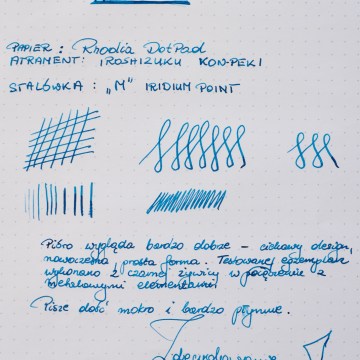 PAPIER: Rhodia DotPad
ATRAMENT: IROSHIZUKU KON-PEKI
STALÓWKA: „M" IRIDIUM POINT
Pióro wygląda bardzo dobrze – ciekawy design,
nowoczesna prosta forma. Testowany egzemplarz
wykonano z czarnej żywicy w połączeniu z
niehalowymi elementami.
Pisze dość mokro i bardzo płynnie.